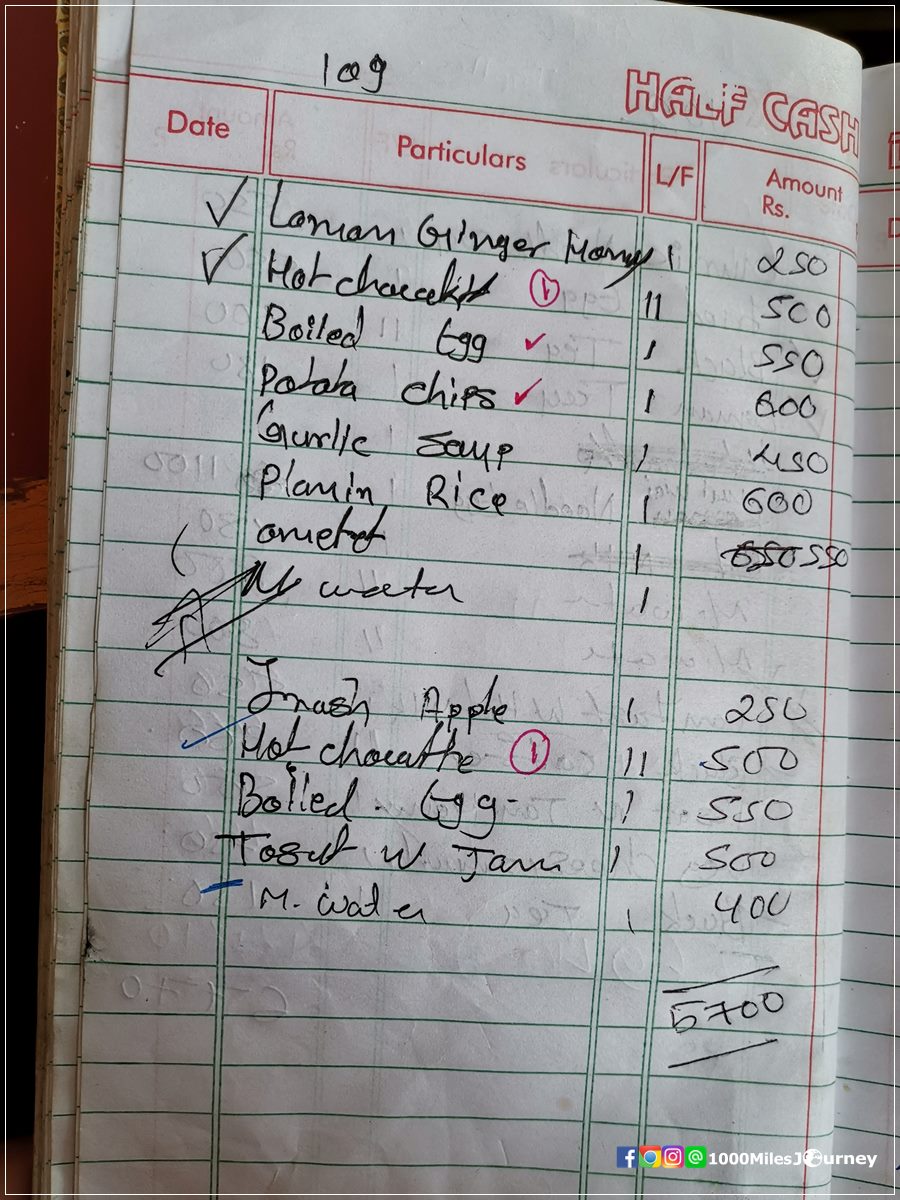 109
HALF CASH
Date Particulars L/F Amount Rs.
Laman Ginger Hony 1 250
Hot chocolate 1 11 500
Boiled Egg 1 550
Potata chips 1 600
Gurlic Soup 1 450
Plainin Rice 1 600
omelet 1 550
M water 1
Smash Apple 1 250
Hot chocatte 1 11 500
Boiled. Egg- 1 550
Tosut W Jam 1 500
M. water 1 400
5700
1000MilesJourney